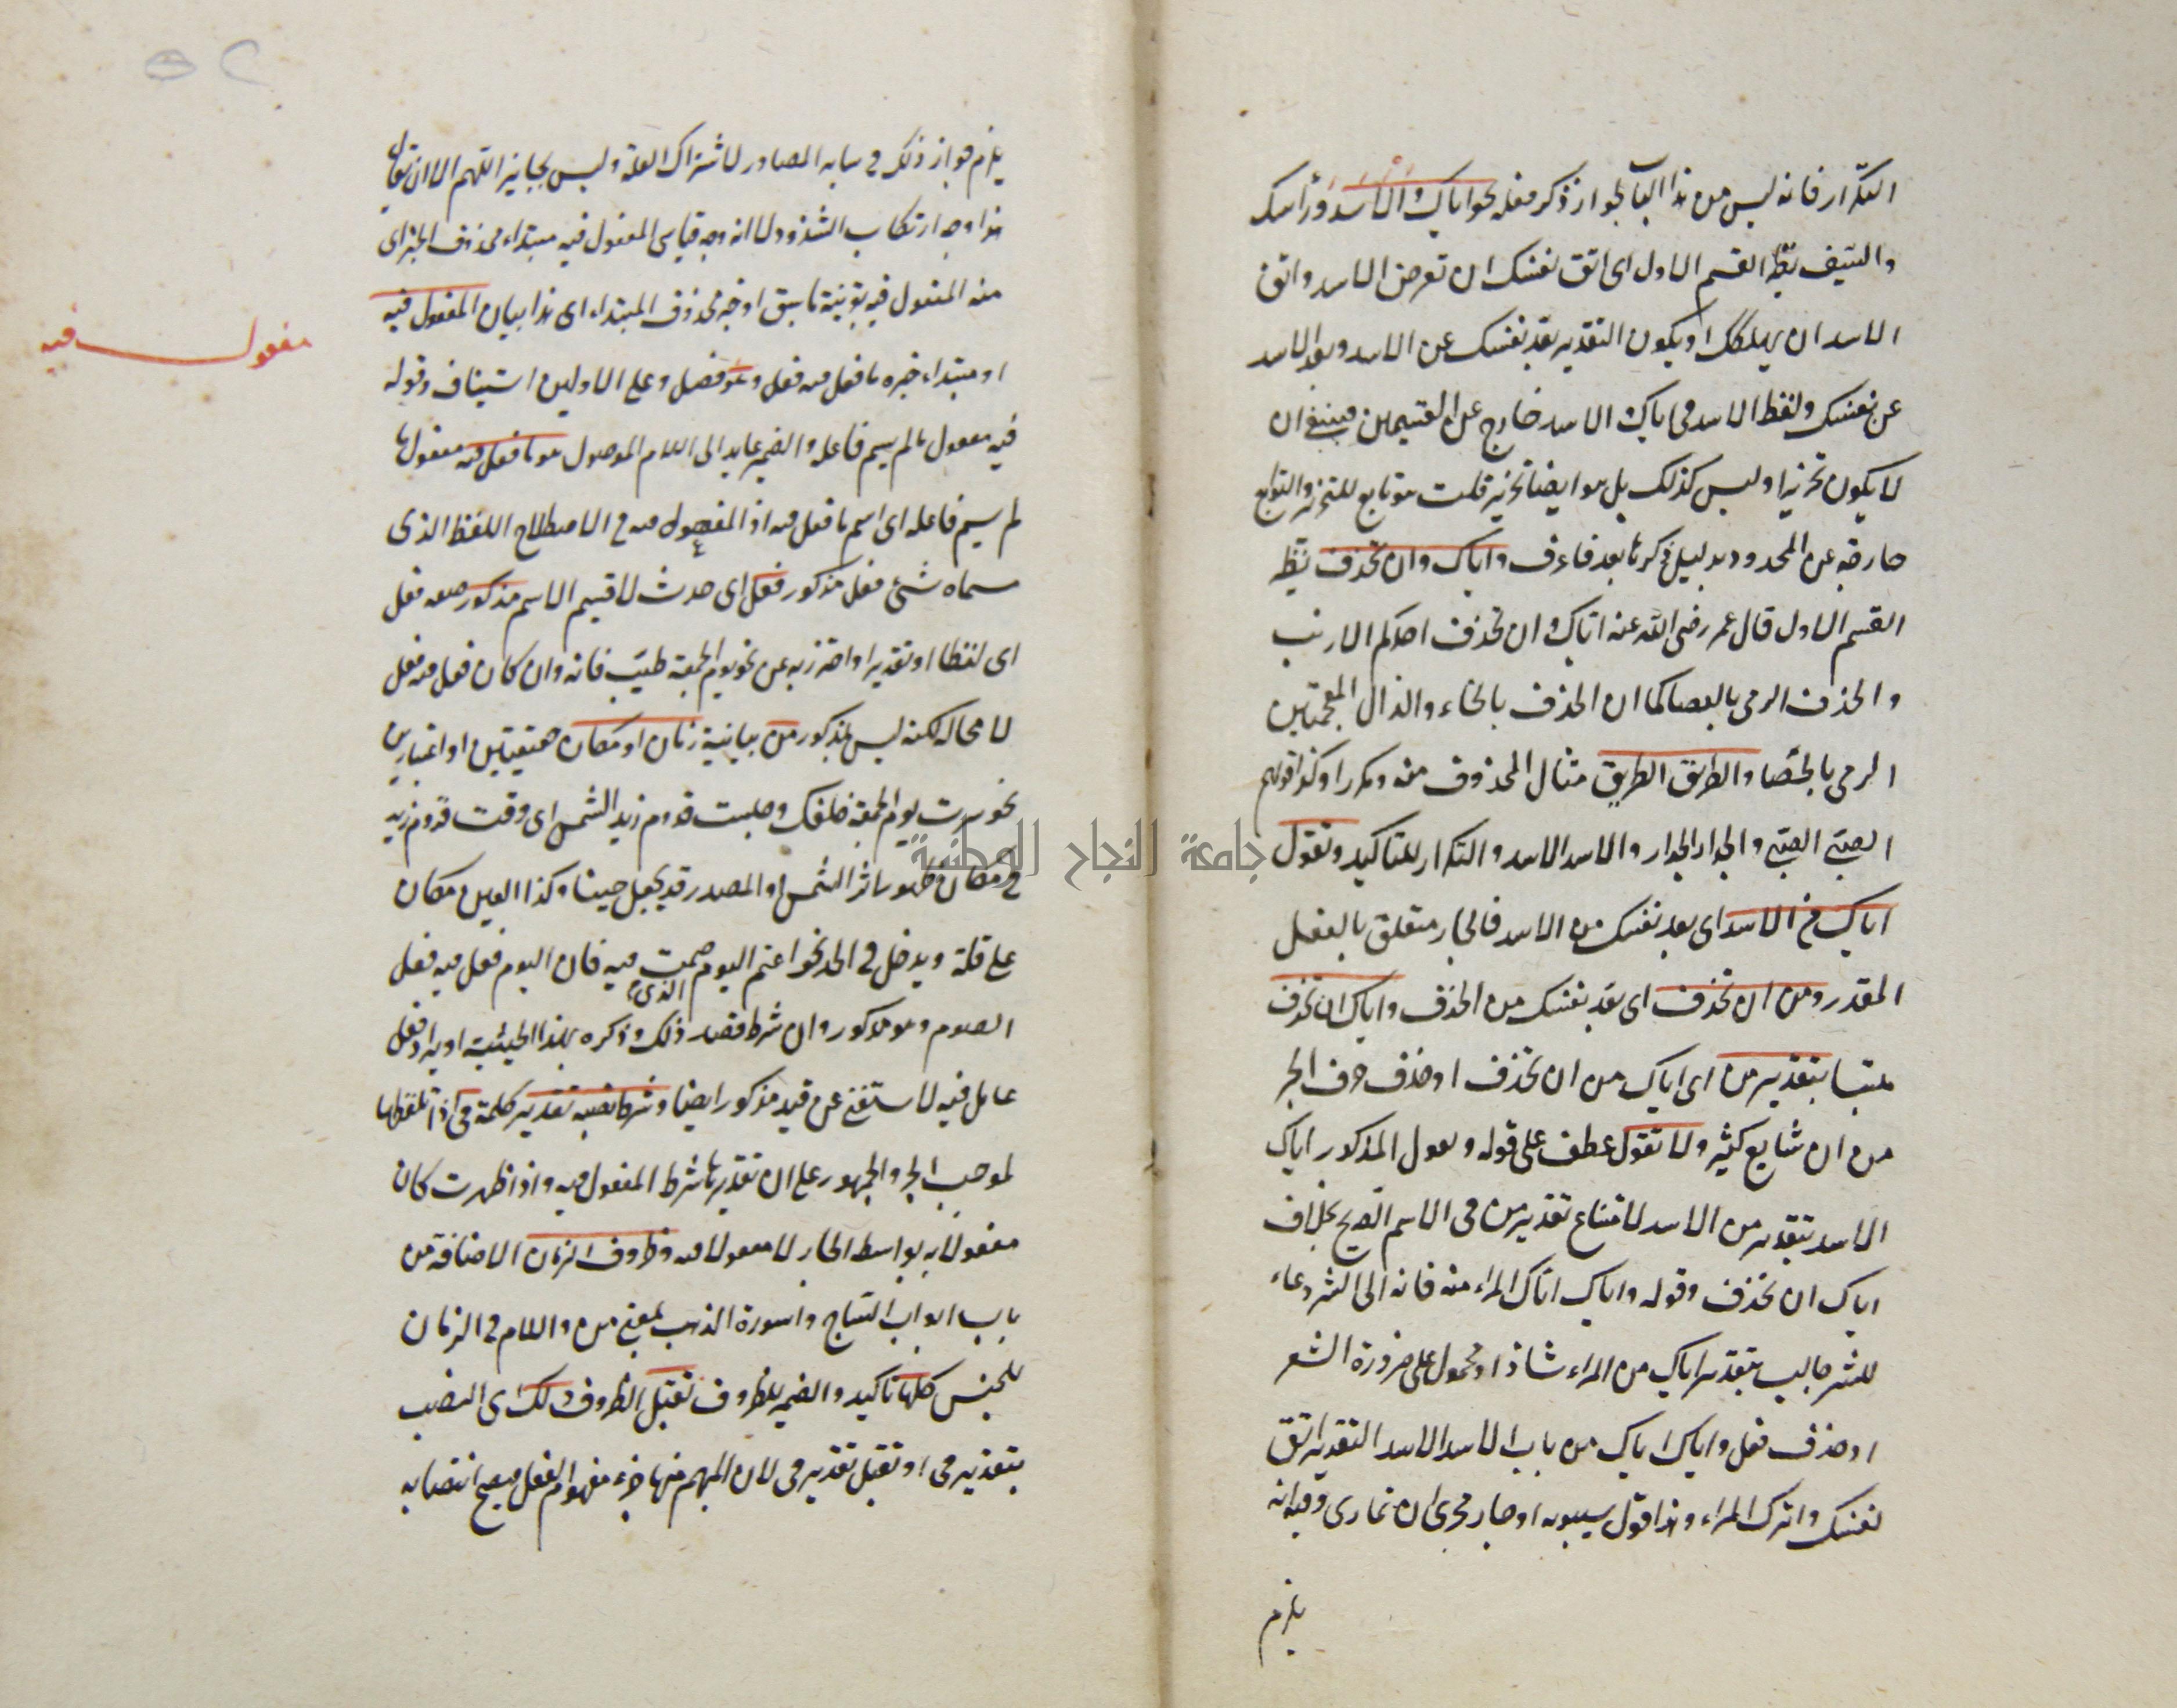 التكرار فانه ليس من هذا الباب لجواز ذكر فعله نحو اياك والاسد ورأسك
والسيف نظير القسم الاول اى اتق نفسك ان تعرض الاسد واتق
الاسد ان يهلكك او يكون التقدير بعد نفسك عن الاسد وبعد الاسد
عن نفسك ولفظ الاسد فى اياك والاسد خارج عن القسيمين فينبغى ان
لا يكون تحذيرا وليس كذلك بل هو ايضا تحذير قلت هو تابع للتحذير والتوابع
خارجة عن المحدود بدليل ذكرها بعد فاعرف واياك وان تحذف نظير
القسم الاول قال عمر رضى الله عنه اياك وان تحذف احدكم الارنب
والحذف الرمى بالعصا كما ان الخذف بالخاء والذال المعجمتين
الرمى بالحصا والطريق الطريق مثال المحذوف منه ومكررا وكذا قولهم
الصبى الصبى والجدار الجدار والاسد الاسد والتكرار للتاكيد وتقول
اياك من الاسد اى بعد نفسك من الاسد فالجار متعلق بالفعل
المقدر ومن ان تحذف اى بعد نفسك من الحذف واياك ان تحذف
ملتبسا بتقدير من اى اياك من ان تحذف اذ حذف حرف الجر
من ان شايع كثير ولا تقول عطف على قوله وتقول المذكور اياك
الاسد بتقدير من الاسد لامتناع تقدير من فى الاسم الصريح بخلاف
اياك ان تحذف وقوله واياك اياك المراء منه فانه الى الشر دعاء
للشر جالب بتقدير اياك من المراء شاذ او محمول على ضرورة الشعر
او حذف فعل واياك اياك من باب الاسد الاسد التقدير اتق
نفسك واترك المراء وهذا قول سيبويه او صار مجرى ان تمارى وفيه انه
يلزم
يلزم جواز ذلك فى سايه المصادر لاشتراك العلة وليس بجايز اللهم الا ان يقال
هذا وجه ارتكاب الشذوذ لا انه وجه قياسى المفعول فيه مبتداء محذوف الخبر اى
منه المفعول فيه بقرينة ما سبق او خبر محذوف المبتداء اى هذا بيان المفعول فيه
مفعول فيه
او مبتداء خبره ما فعل فيه فعل وهو فصل وعلى الاولين استيناف وقوله
فيه مفعول ما لم يسم فاعله والضمير عايد الى اللام الموصول هو ما فعل فيه مفعول ما
لم يسم فاعله اى اسم ما فعل فيه اذ المفعول فيه فى الاصطلاح اللفظ الذى
سماه شئ فعل مذكور فعل اى حدث لا قسيم الاسم مذكور معه فعل
اى لفظا او تقديرا واحترز به عن نحو يوم الجمعة طيب فانه وان كان فعل فيه فعل
لا محالة لكنه ليس بمذكور من بيانية زمان او مكان حقيقيتين او اعتباريين
نحو سرت يوم الجمعة خلفك وجلست قدوم زيد الشمس اى وقت قدوم زيد
فى مكان ظهور اثر الشمس او المصدر قد يجعل حينا وكذا العين مكان
على قلة ويدخل فى الحد نحو اعنم اليوم الذى صمت فيه فان اليوم فعل فيه فعل
الصوم وهو مذكور وان شرط قصد ذلك وذكره بهذا الحيثية او يراد فعل
عامل فيه لاستغنى عن قيد مذكور ايضا وشرط نصبه تقدير كلمة فى اذ تلفظها
لموجب الجر والجمهور على ان تقديرها شرط المفعول فيه واذا ظهرت كان
مفعولا به بواسطة الجار لا مفعولا فيه وظروف الزمان الاضافة من
باب ابواب الساج واسورة الذهب بمعنى من واللام فى الزمان
للجنس كلها تاكيد والضمير للظروف تقبل الظروف ذلك اى النصب
بتقدير فى او تقبل تقدير فى لان المبهم منها جزء مفهوم الفعل فيصح انتصابه
جامعة النجاح الوطنية